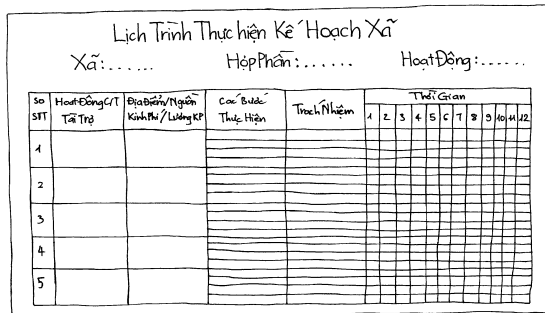 Lịch Trình Thực hiện Kế Hoạch Xã
Xã:...... Hợp Phần:...... Hoạt Động:......
Số STT Hoạt Động C/T Tài Trợ Địa Điểm/Nguồn Kinh Phí/Lượng KP Các Bước Thực Hiện Trách Nhiệm Thời Gian
1 2 3 4 5 6 7 8 9 10 11 12
1
2
3
4
5